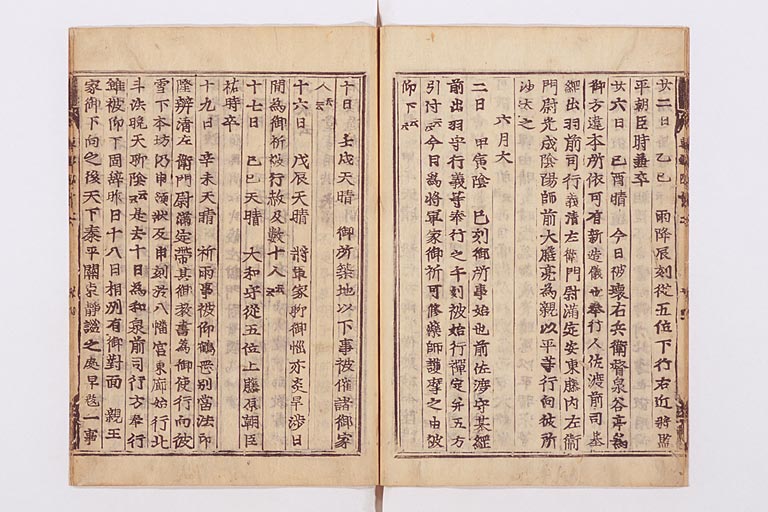 廿二日 乙巳 雨降辰刻従五位下行右近将監
平朝臣時 卒
廿六日 己酉晴 今日被壊右兵衛督泉谷亭為
御方違本所依可有新造儀也奉行人佐渡前司基
綱出羽前司行義清左衛門尉満定安東藤内左衛
門尉光成陰陽師前大膳亮為親以平等行向彼所
沙汰之
六月大
二日 甲寅陰 巳刻御所事始也前佐渡守基綱
前出羽守行義等奉行之午刻被始行禅定并五方
引付云々今日為将軍家御祈可修薬師護摩之由被
仰下云々
十日 壬戌天晴 御所築地以下事被催諸御家
人云々
十六日 戊辰天晴 将軍家聊御悩亦炎旱渉日
間為御祈被行赦及数十人云々
十七日 己巳天晴 大和守従五位上藤原朝臣
祐時卒
十九日 辛未天晴 祈雨事被仰鶴岡別当法印
隆辨清左衛門尉満定帯其御教書為御使行向彼
雪下本坊乃申領状及申刻於八幡宮東廊始行北
斗法晩天聊陰云々是去十日為和泉前司行方奉行
雖被仰下固辞昨日十八日相州有御対面 親王
家御下向之後天下泰平関東静謐之処早 一事